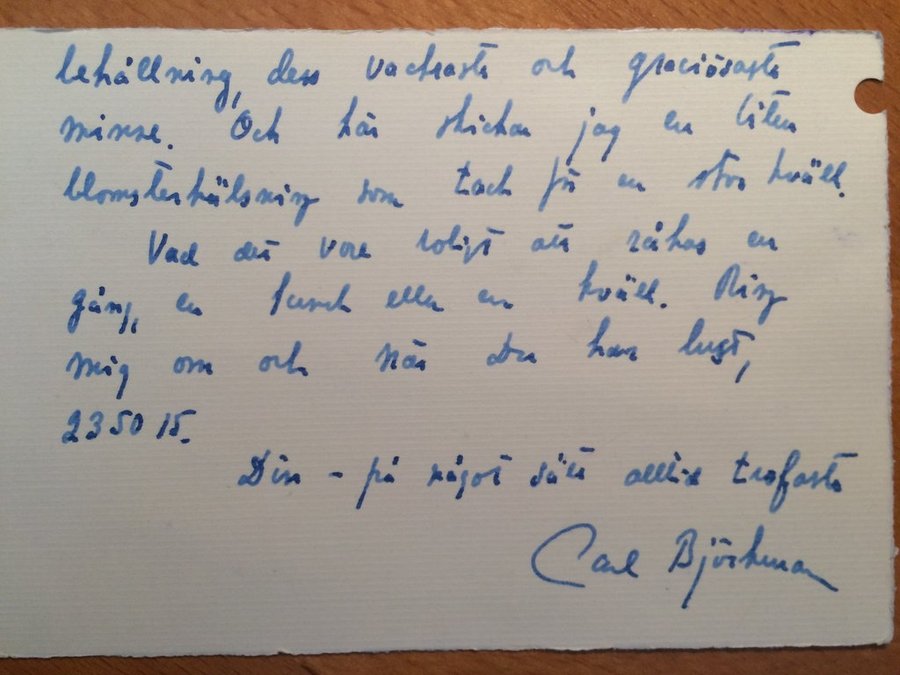 behållning, dess vackraste och graciösaste
minne. Och här skickar jag en liten
blomsterhälsning som tack för en stor kväll.
Vad det vore roligt att råkas en
gång, en lunch eller en kväll. Ring
mig om och när Du har lust,
235015.
Din - på något sätt alltid trofaste
Carl Björkman